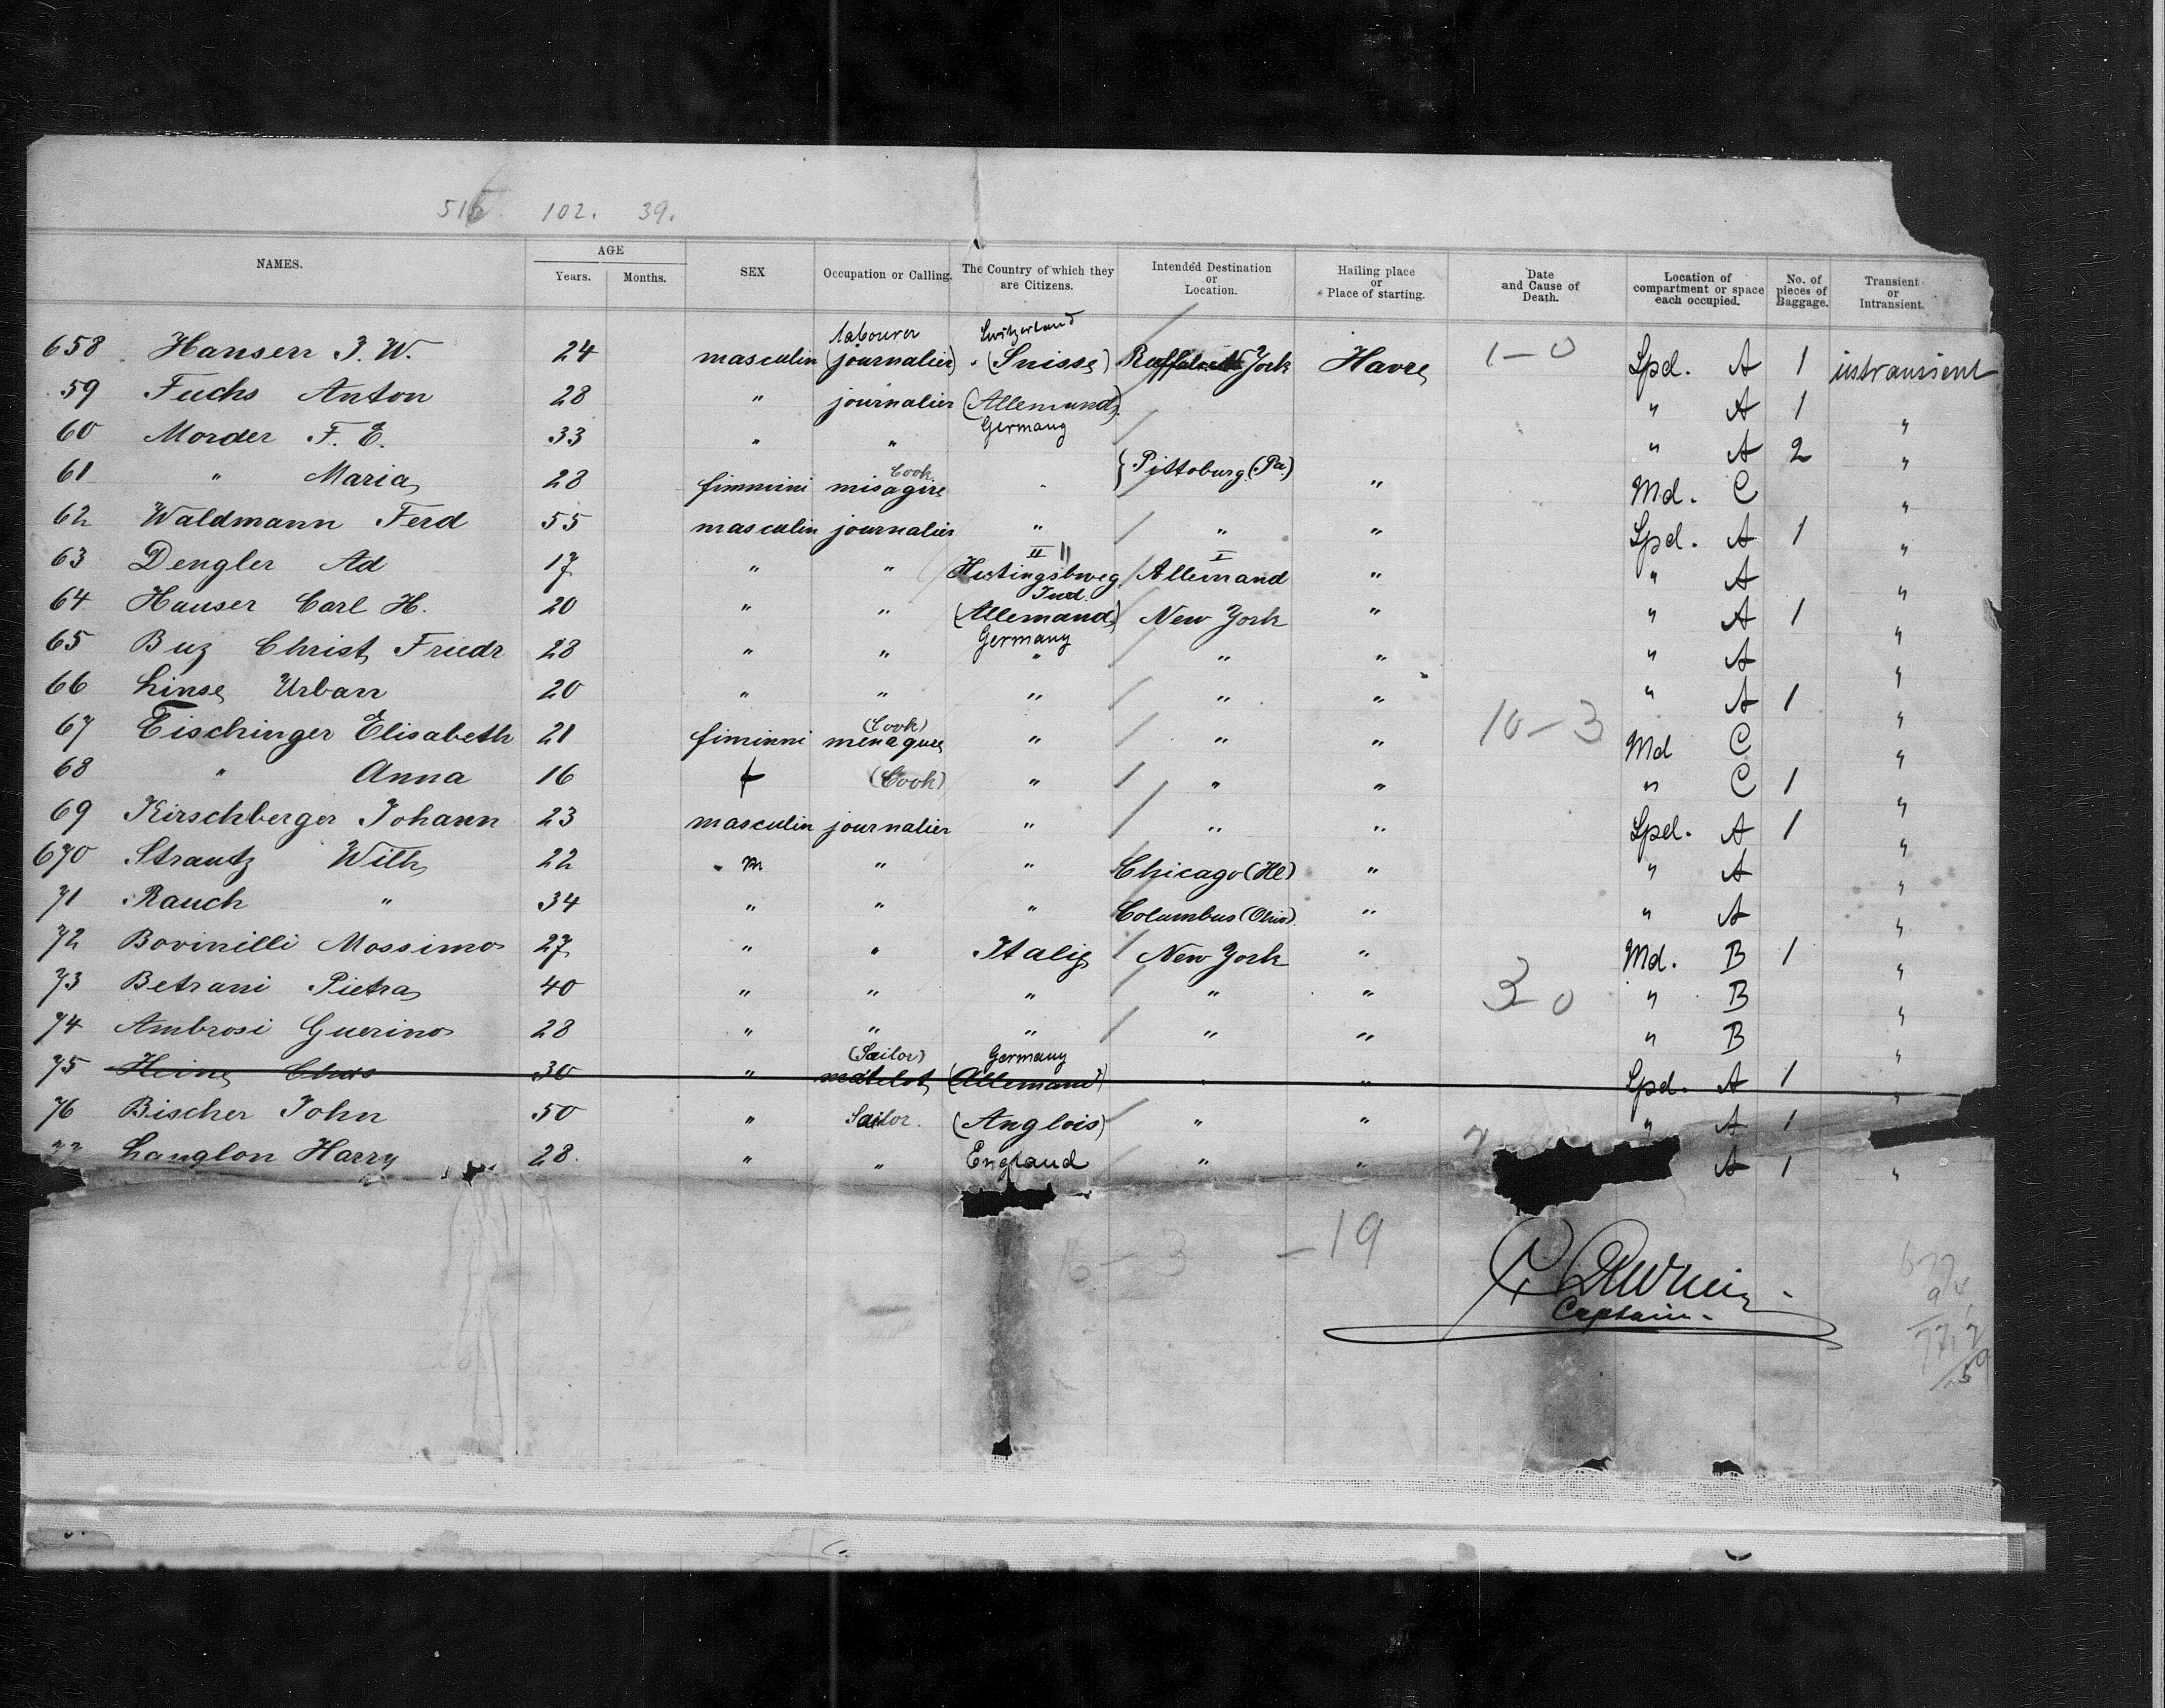 516 102. 39.
NAMES. AGE Years. Months. SEX Occupation or Calling. The Country of which they are Citizens. Intended Destination or Location. Hailing place or Place of starting. Date and Cause of Death. Location of compartment or space each occupied. No. of pieces of Baggage. Transient or Intransient.
labourer Switzerland
658 Hansen J. W. 24 masculin (journalier) (Suisse) Buffalo York Havre 1-0 Spd. A 1 intransient
59 Fuchs Anton 28 " journalier (Allemand) " A 1 "
Germany
60 Morder F. E. 33 " " " A 2 "
Cook
61 " Maria 28 fiminini misagire " } Pittsburg (Pa) " Md. C "
62 Waldmann Ferd 55 masculin journalier " " " Spd. A 1 "
II II I
63 Dengler Ad 17 " " Hutingsbweg Allemand " " A "
Ind.
64 Hauser Carl H. 20 " " (Allemand) New York " " A 1 "
Germany
65 Buz Christ Friedr 28 " " " " " " A "
66 Linse Urban 20 " " " " " " A 1 "
(Cook)
67 Eischinger Elisabeth 21 fiminini menagere " " " 10-3 Md C "
68 " Anna 16 f (Cook) " " " " C 1 "
69 Kirschberger Johann 23 masculin journalier " " " Spd. A 1 "
670 Strautz Wilh 22 m " " Chicago (Ill) " " A "
71 Rauch " 34 " " " Columbus (Ohio) " " A "
72 Bovinilli Mossimo 27 " " Italie New York " Md. B 1 "
73 Betrani Pietra 40 " " " " " 3-0 " B "
74 Ambrosi Guerino 28 " " " " " " B "
(Sailor) Germany
75 Heine Chas 30 " matelot (Allemand) " " Spd. A 1 "
76 Bischer John 50 " Sailor. (Anglois) " " " A 1 "
77 Langlon Harry 28. " " England " " A 1 "
16-3 -19
Captain.